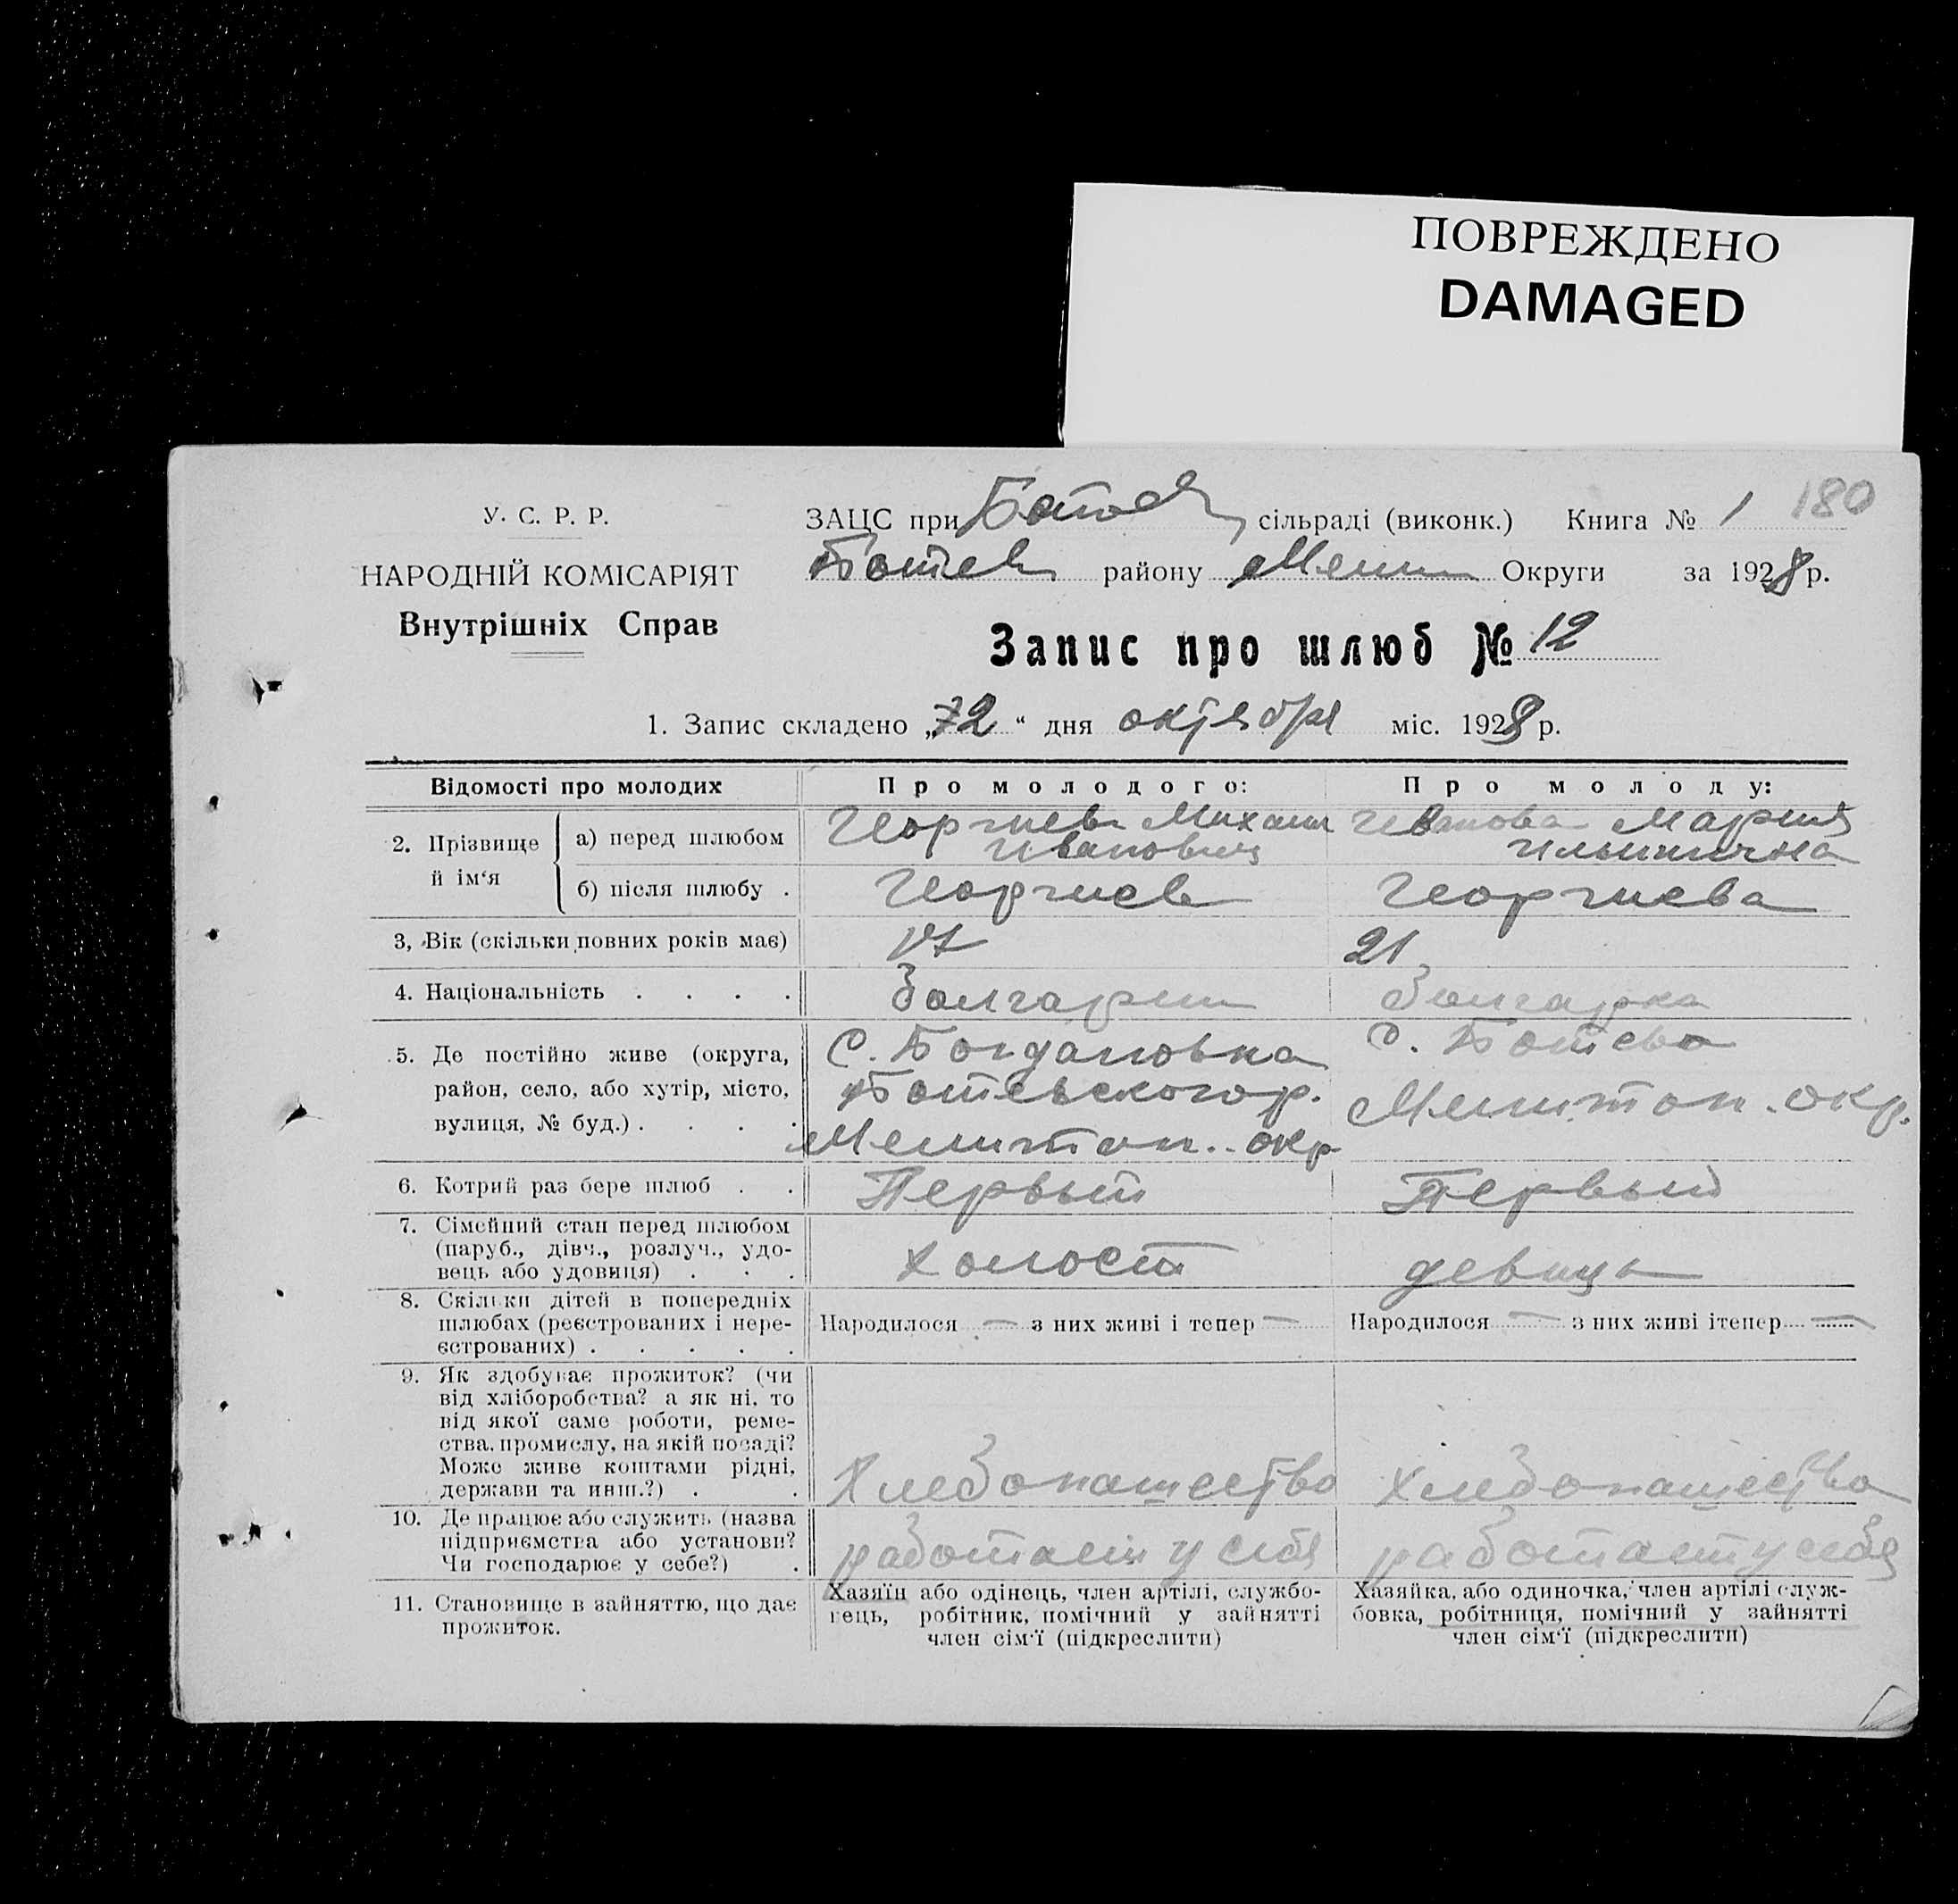 ПОВРЕЖДЕНО
DAMAGED
У. С. Р. Р.
НАРОДНІЙ КОМІСАРІЯТ
Внутрішніх Справ
ЗАЦС при Ботев сільраді (виконк.) Книга № 1 180
Ботев району Мелит Округи за 1928 р.
Запис про шлюб № 12
1. Запис складено „ 2 “ дня октября міс. 1928 р.
Відомості про молодих Про молодого: Про молоду:
2. Прізвище й ім‘я а) перед шлюбом Георгиев Михаил Иванович Иванова Мария Ильинична
б) після шлюбу . Георгиев Георгиева
3, Вік (скільки повних років має) 17 21
4. Національність . . . . Болгарин Болгарка
5. Де постійно живе (округа, С. Богдановка С. Ботево
район, село, або хутір, місто, Ботевского р. Мелитоп. окр.
вулиця, № буд.) . . . . Мелитоп. окр
6. Котрий раз бере шлюб . . Первый Первый
7. Сімейний стан перед шлюбом
(паруб., дівч., розлуч., удо-
вець або удовиця) . . . холост девица
8. Скільки дітей в попередніх
шлюбах (реєстрованих і нере- Народилося — з них живі і тепер — Народилося — з них живі ітепер —
єстрованих) . . . . .
9. Як здобуває прожиток? (чи
від хліборобства? а як ні, то
від якої саме роботи, реме-
ства, промислу, на якій посаді?
Може живе коштами рідні,
держави та инш.?) . . Хлебопашество Хлебопашество
10. Де працює або служить (назва
підприємства або установи? работает у себя работает у себя
Чи господарює у себе?) .
11. Становище в зайняттю, що дає
прожиток.
Хазяїн або одінець, член артілі, службо-
вець, робітник, помічний у зайнятті
член сім‘ї (підкреслити)
Хазяйка, або одиночка, член артілі служ-
бовка, робітниця, помічний у зайнятті
член сім‘ї (підкреслити)